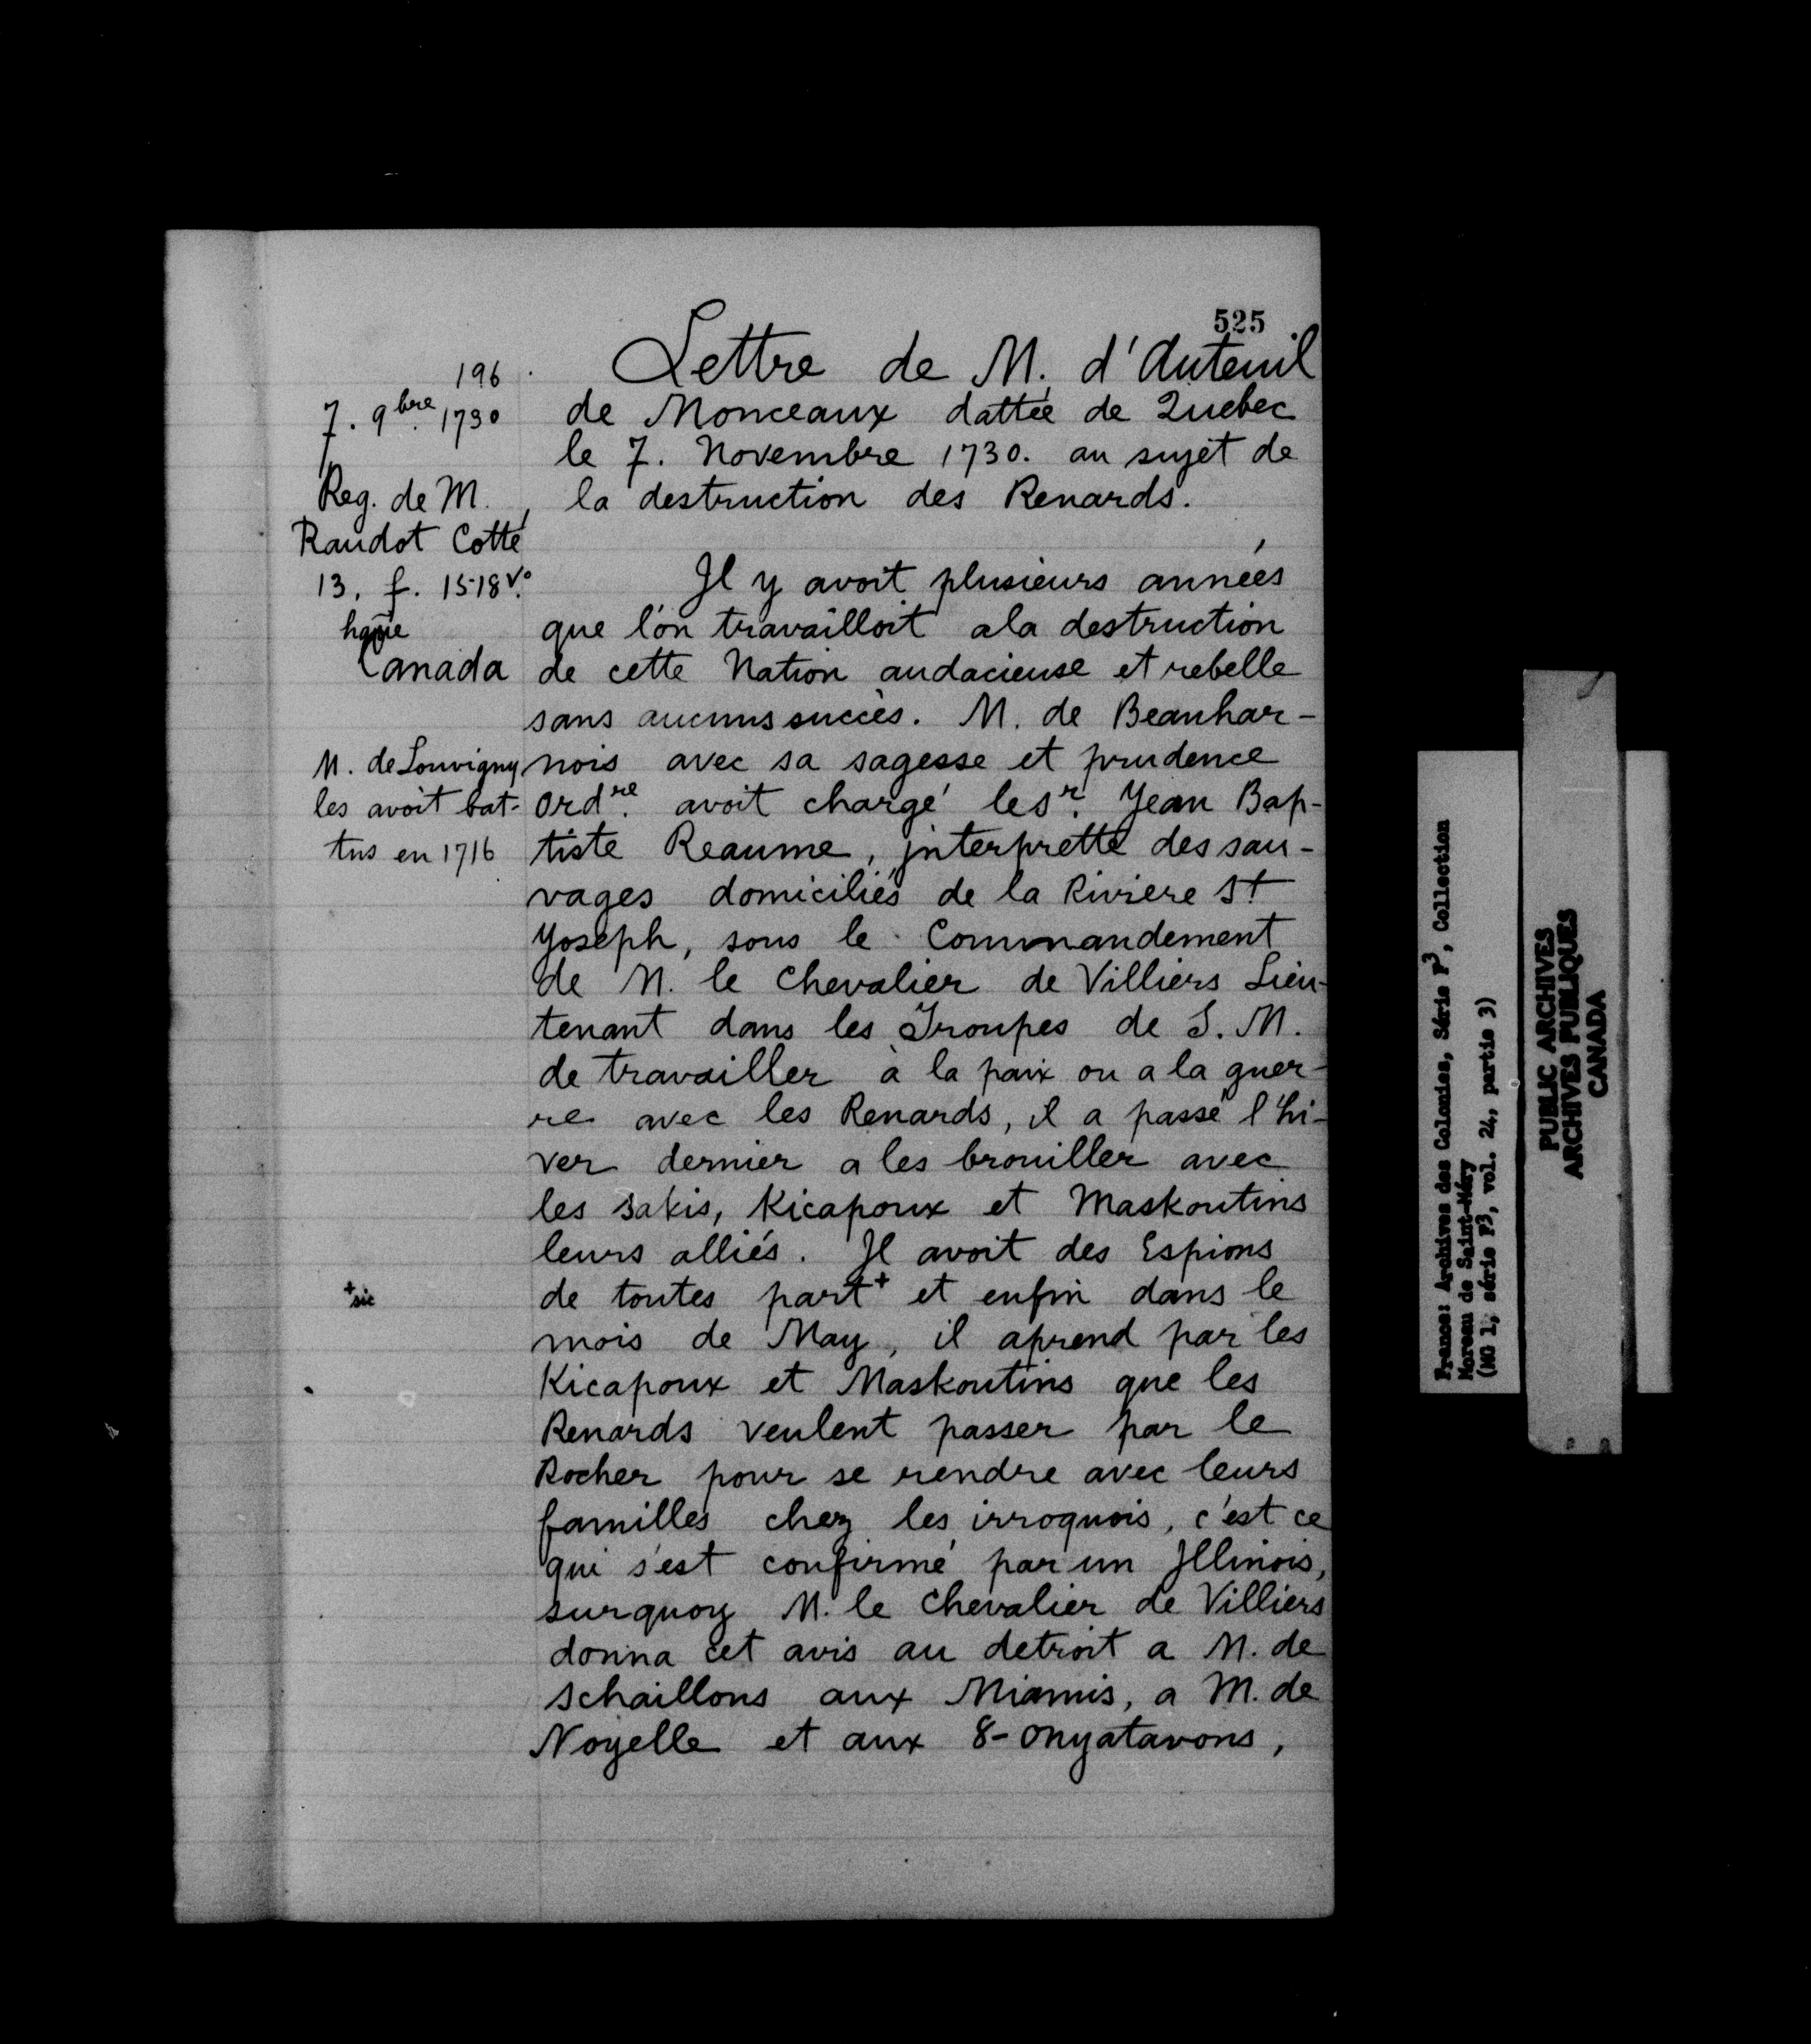 525
196
7. 9bre. 1730
Reg. de M.
Raudot Cotté
13, f. 15-18 v.o
Canada
M. de Louvigny
les avoit bat-
tus en 1716
+sic
Lettre de M. d'Auteuil
de Monceaux dattée de Quebec
le 7. Novembre 1730. au sujet de
la destruction des Renards.
Il y avoit plusieurs années
que l'on travailloit ala destruction
de cette Nation audacieuse et rebelle
sans aucuns succès. M. de Beauhar-
nois avec sa sagesse et prudence
ordre. avoit chargé le Sr. Jean Bap-
tiste Reaume, interprette des sau-
vages domiciliés de la Riviere St
Joseph, sous le Commandement
de M. le Chevalier de Villiers Lieu-
tenant dans les Troupes de S. M.
de travailler à la paix ou a la guer-
re avec les Renards, il a passé l'hi-
ver dernier a les brouiller avec
les Sakis, Kicapoux et Maskoutins
leurs alliés. Il avoit des Espions
de toutes part+ et enfin dans le
mois de May, il aprend par les
Kicapoux et Maskoutins que les
Renards veulent passer par le
Rocher pour se rendre avec leurs
familles chez les irroquois, c'est ce
qui s'est confirmé par un Illinois,
surquoy M. le Chevalier de Villiers
donna cet avis au detroit a M. de
Schaillons aux Miamis, a M. de
Noyelle et aux 8-onyatavons,
France: Archives des Colonies, Série F3, Collection
Moreau de Saint-Méry
(MG 1, série F3, vol. 24, partie 3)
PUBLIC ARCHIVES
ARCHIVES PUBLIQUES
CANADA